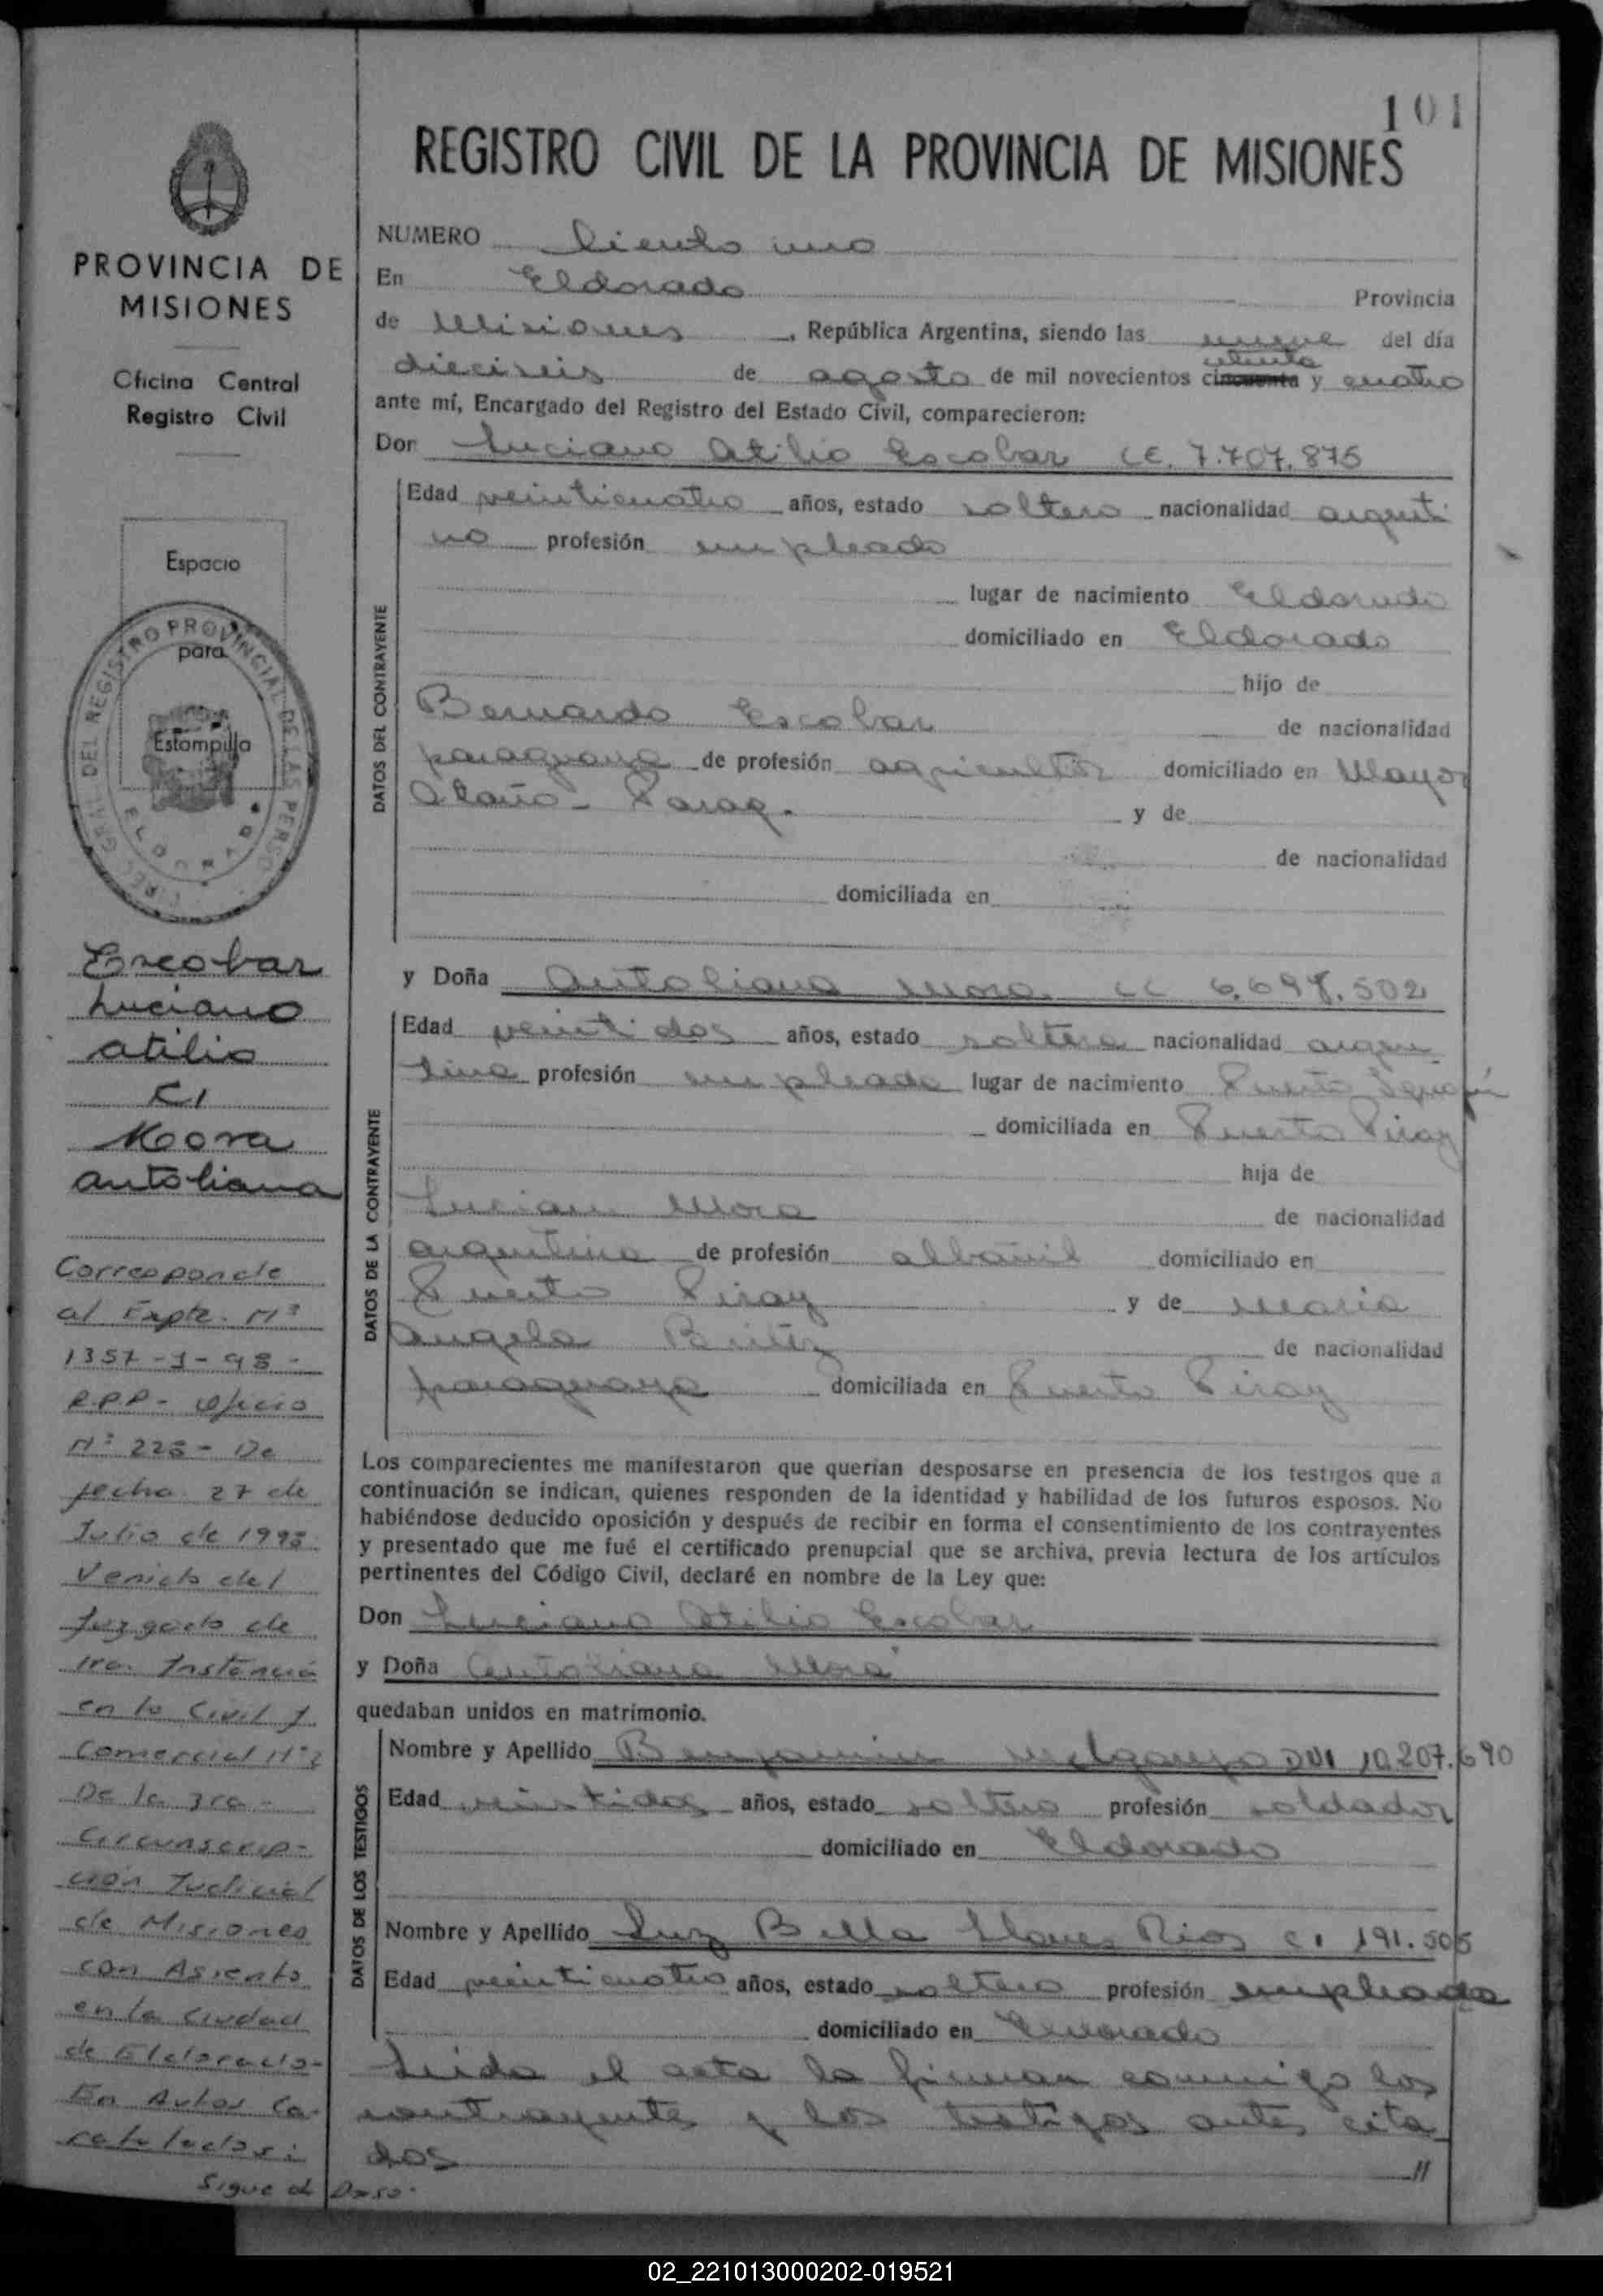 101
REGISTRO CIVIL DE LA PROVINCIA DE MISIONES
PROVINCIA DE
MISIONES
Oficina Central
Registro Civil
Espacio
para
Estampilla
Escobar
Luciano
Atilio
C/
Mora
Antoliana
Corresponde
al Expte. Nº
1357-J-98-
R.P.P- Oficio
Nº 225- De
fecha 27 de
Julio de 1998
Venido del
Juzgado de
1ra. Instancia
en lo Civil y
Comercial Nº2
De la 3ra-
Circunscrip-
ción Judicial
de Misiones
con Asiento
en la Ciudad
de Eldorado-
En Autos Ca-
ratulados:
Sigue al Dorso.
NUMERO Ciento uno
En Eldorado Provincia
de Misiones, República Argentina, siendo las nueve del día
dieciseis de agosto de mil novecientos cincuenta setenta y cuatro
ante mí, Encargado del Registro del Estado Civil, comparecieron:
Don Luciano Atilio Escobar LE. 7.707.875
DATOS DEL CONTRAYENTE
Edad veinticuatro años, estado soltero nacionalidad argenti
no profesión empleado
lugar de nacimiento Eldorado
domiciliado en Eldorado
hijo de
Bernardo Escobar de nacionalidad
paraguaya de profesión agricultor domiciliado en Mayor
Otaño - Parag. y de
de nacionalidad
domiciliada en
y Doña Antoliana Mora LC 6.698.502
DATOS DE LA CONTRAYENTE
Edad veintidos años, estado soltera nacionalidad argen
tina profesión empleada lugar de nacimiento Puerto
domiciliada en Puerto Piray
hija de
Mora de nacionalidad
argentina de profesión albañil domiciliado en
Puerto Piray y de Maria
Angela Benitez de nacionalidad
paraguaya domiciliada en Puerto Piray
Los comparecientes me manifestaron que querían desposarse en presencia de los testigos que a
continuación se indican, quienes responden de la identidad y habilidad de los futuros esposos. No
habiéndose deducido oposición y después de recibir en forma el consentimiento de los contrayentes
y presentado que me fué el certificado prenupcial que se archiva, previa lectura de los artículos
pertinentes del Código Civil, declaré en nombre de la Ley que:
Don Luciano Atilio Escobar
y Doña Antoliana Mora
quedaban unidos en matrimonio.
DATOS DE LOS TESTIGOS
Nombre y Apellido Benjamin Melgarejo DNI 10.207.690
Edad veintidos años, estado soltero profesión soldador
domiciliado en Eldorado
Nombre y Apellido Luz Bella Llanes Rios C.I 191.505
Edad veinticuatro años, estado soltera profesión empleada
domiciliado en Eldorado
Leida el acta la firman conmigo los
contrayentes y los testigos antes cita
dos //
02_221013000202-019521